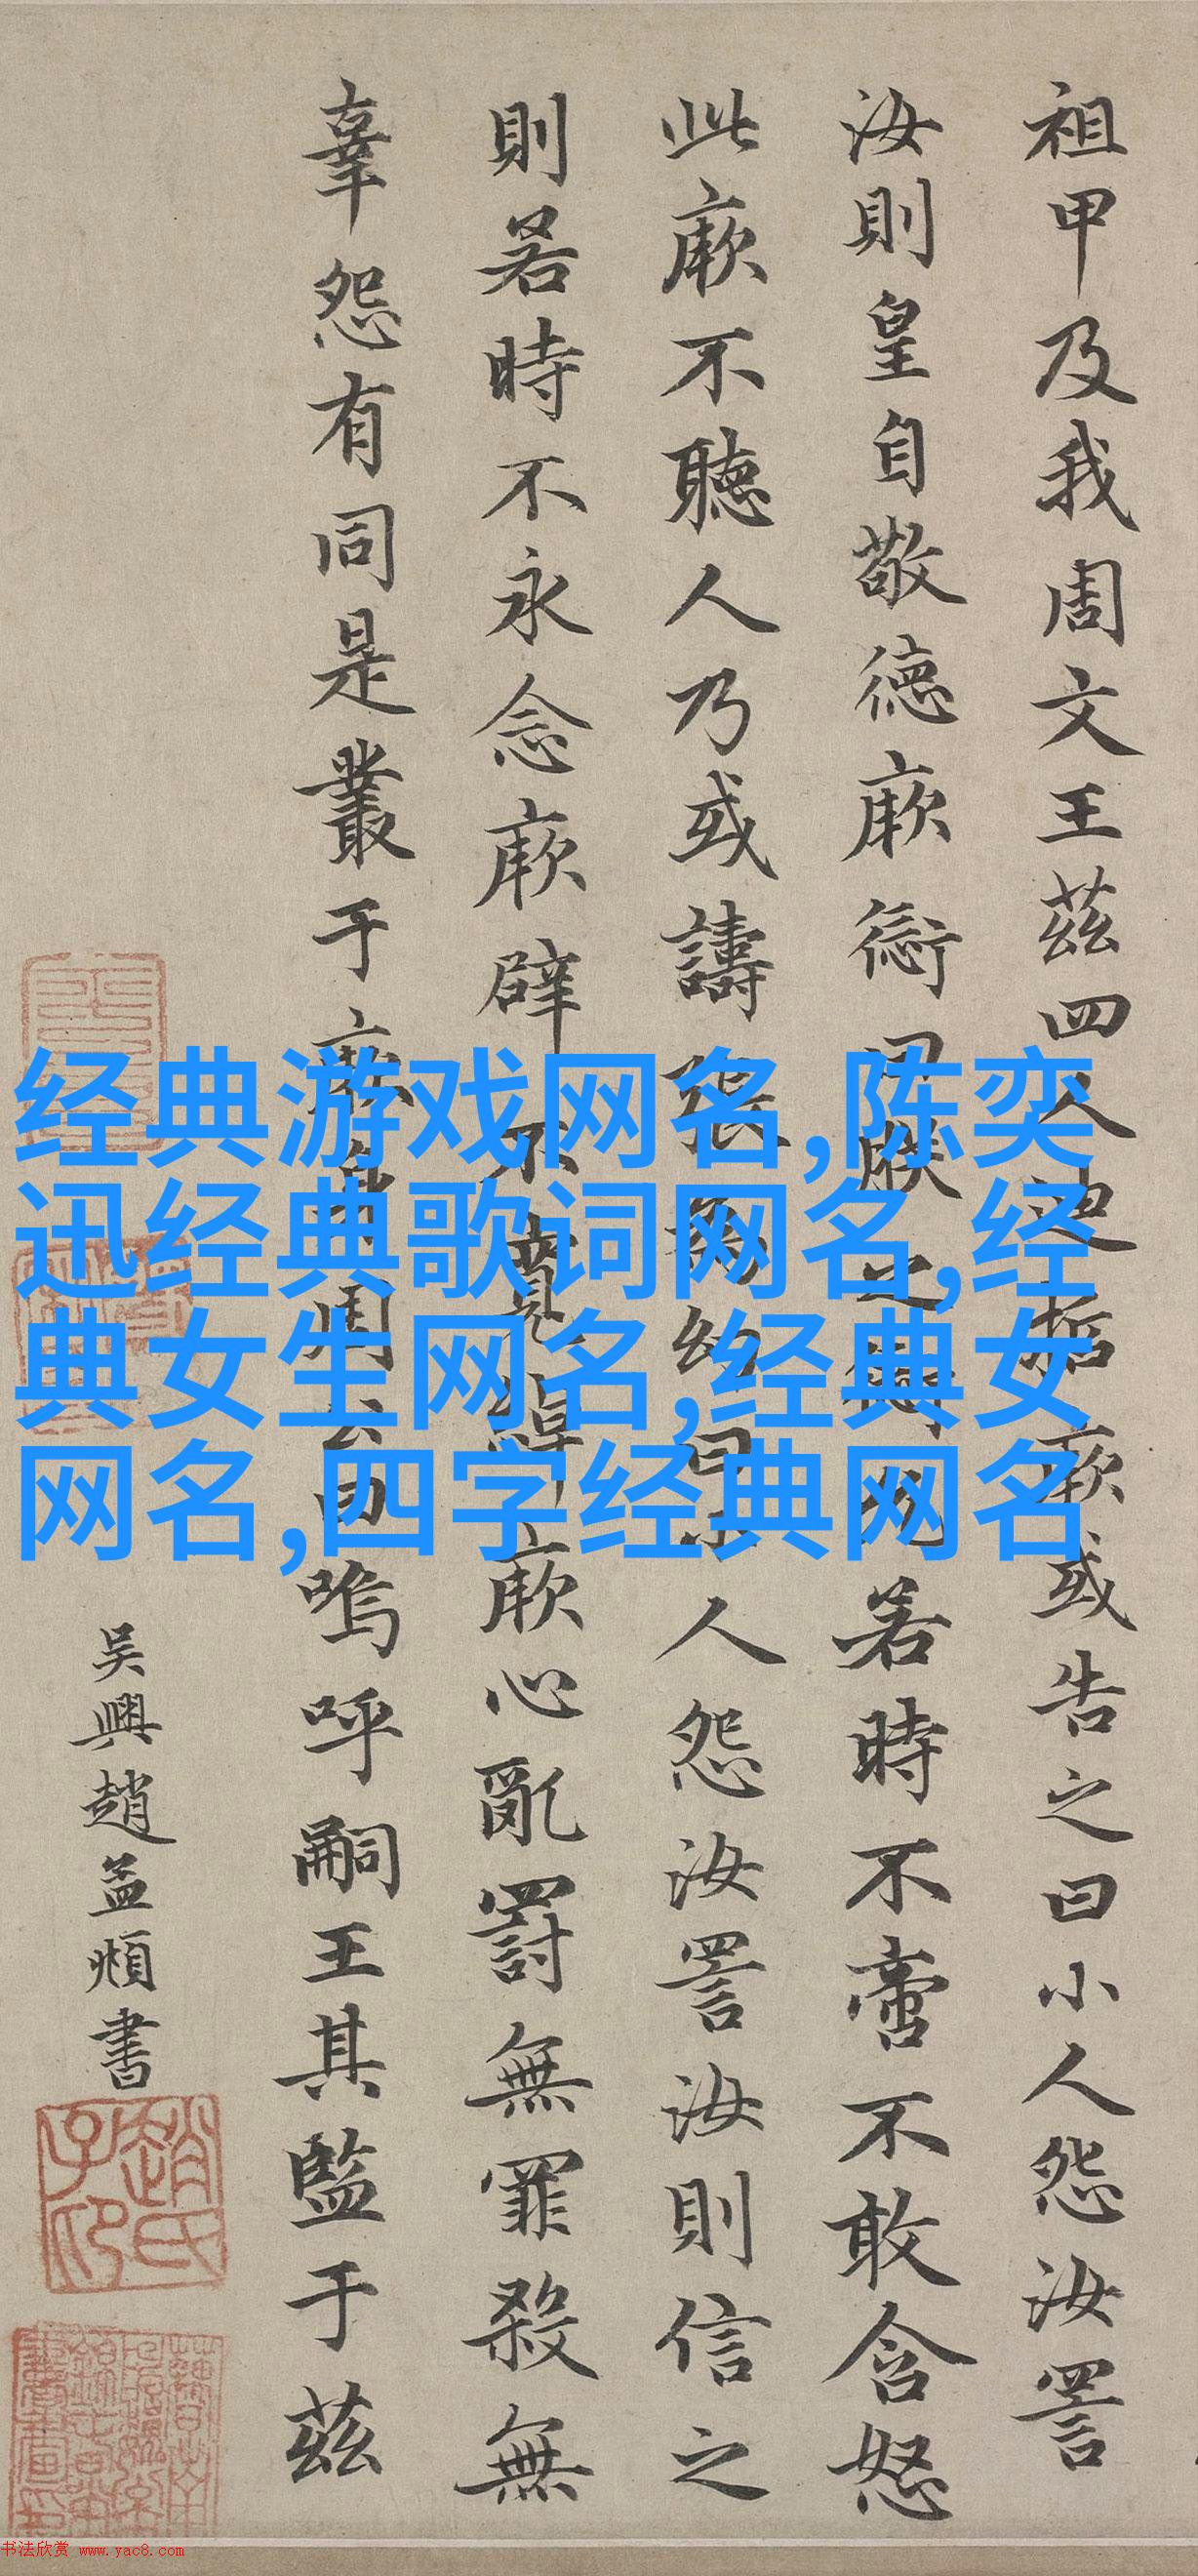 祖甲及我周文王茲四人迪哲厥或告之曰小人怨汝詈
汝則皇自敬德厥愆曰朕之愆允若時不啻不敢含怒
此厥不聽人乃或譸張為幻曰小人怨汝詈汝則信之
則若時不永念厥辟不寬綽厥心亂罰無罪殺無
辜怨有同是叢于厥身周公曰嗚呼嗣王其監于茲
吳興趙孟頫書
趙氏子昂
经典游戏网名,陈奕
迅经典歌词网名,经
典女生网名,经典女
网名,四字经典网名
书法欣赏 www.yac8.com